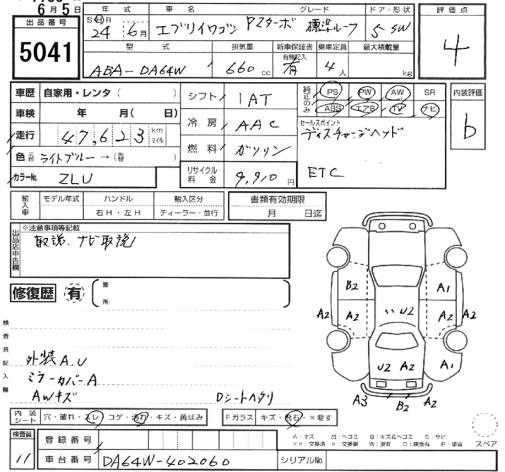 6月5日
出品番号
5041
年式 車名 グレード ドア・形状
S・H・R 24年 6月 エブリイワゴン PZターボ 標準ルーフ 5 SW
型式 排気量 新車保証書 有無記入 乗車定員 最大積載量
ABA-DA64W 660 cc 有 4人 kg
評価点
4
車歴 自家用・レンタ( )
車検 年 月( 日)
走行 47,623 km マイル
色 ライトブルー→
カラーNo. ZLU
シフト IAT
冷房 AAC
燃料 ガソリン
リサイクル料金 9,910円
純正のみ PS PW AW SR
ABS エアB TV ナビ
セールスポイント
ディスチャージヘッド
ETC
内装評価
b
輸入車 モデル年式 ハンドル 輸入区分 書類有効期限
右H・左H ディーラー・並行 月 日迄
出品店申告欄
※注意事項等記載
取説、ナビ取説
修復歴 有 箇所
検査員記入欄
外装A.U
ミラーカバーA
AWキズ
Dシートヘタリ
B2 A1
A2 A2 U2 A2 A2
U2 A2 A1
A3 B2 A2
内装シート 穴・破れ・スレ コゲ・汚れ・キズ・黄ばみ
Fガラス キズ・飛石・×要す
A:キズ H:ヘコミ B:キズ&ヘコミ S:サビ
スペア
検査員 11
登録番号
車台番号 DA64W-402060 シリアルNo.